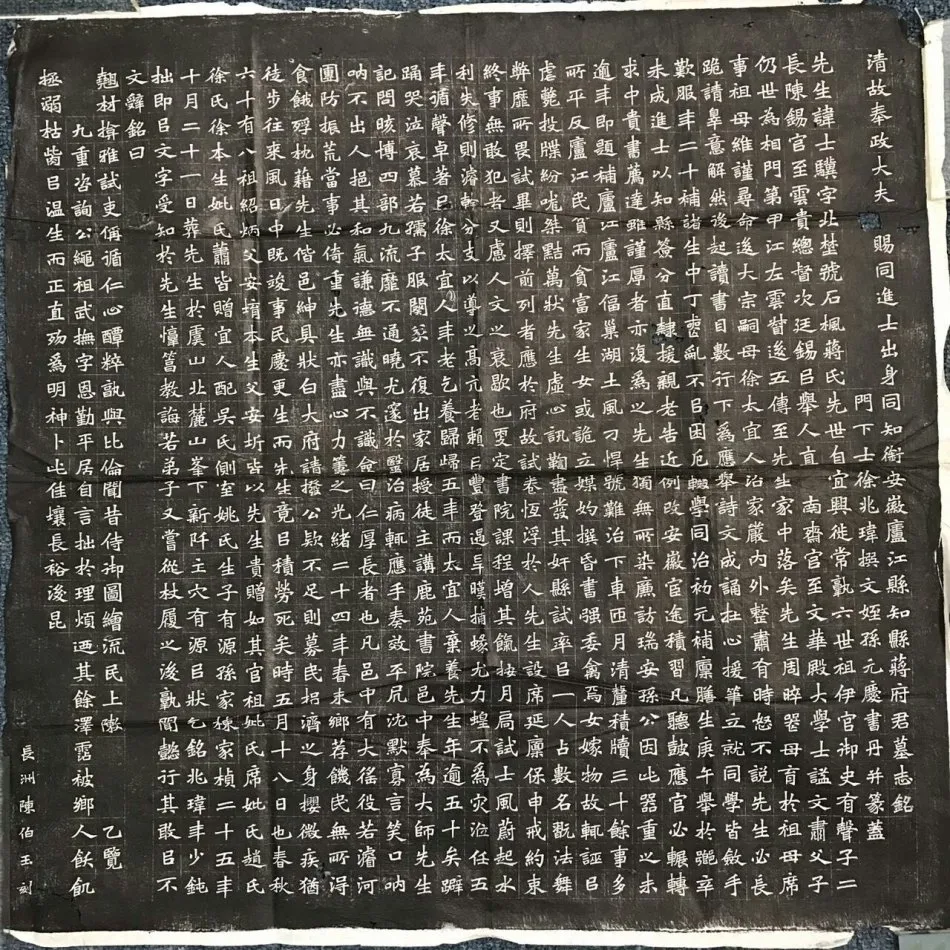 清故奉政大夫　賜同進士出身同知銜安徽廬江縣知縣蔣府君墓志銘
門下士徐兆瑋撰文姪孫元慶書丹并篆蓋
先生諱士驥字北埜號石楓蔣氏先世自宜興徙常孰六世祖伊官御史有聲子二
長陳錫官至雲貴總督次廷錫㠯舉人直　南齋官至文華殿大學士謚文肅父子
仍世為相門第甲江左雲督後五傳至先生家中落矣先生周晬器母育於祖母席
事祖母維謹尋命後大宗嗣母徐太宜人治家嚴內外整肅有時怒不說先生必長
跪請辠意解然後起讀書目數行下為應舉詩文成誦在心援筆立就同學皆斂手
歎服年二十補諸生中丁亂不㠯困厄輟學同治初元補廩膳生庚午舉於鄉辛
未成進士以知縣簽分直隸援親老告近例改安徽官途積習凡聽鼓應官必輾轉
求中貴書薦達雖謹厚者亦復為之先生獨無所染廉訪瑞安孫公因此器重之未
逾年即題補廬江廬江偪巢湖土風刁悍號難治下車匝月清釐積牘三十餘事多
所平反廬江民貧而貪富家生女或詭立媒妁撰昏書強委禽焉女嫁物故輒誣㠯
虐斃投牒紛呶桀黠萬狀先生虛心訊鞫盡發其奸縣試率㠯一人占數名翫法舞
弊靡所畏試畢則擇前列者應於府故試卷恆浮於人先生設席延廩保申戒約束
終事無敢犯者又慮人文之衰歇也更定書院課程增其餼按月局試士風蔚起水
利失修則濬榦分支以導之高亢者賴㠯豐登過旱暵捐蝝尤力蝗不為災涖任五
年循聲卓著已徐太宜人年老乞養歸歸五年而太宜人棄養先生年逾五十矣躃
踊哭泣哀慕若孺子服闋遂不復出家居授徒主講鹿苑書院邑中奉為大師先生
記問晐博四部九流靡不通曉尤邃於醫治病輒應手奏效平凥沈默寡言笑口吶
吶不出人挹其和氣謙德無識與不識僉曰仁厚長者也凡邑中有大徭役若濬河
團防振荒當事必倚重先生亦盡心力籌之光緒二十四年春末鄉荐饑民無所得
食餓殍枕藉先生偕邑紳具狀白大府請撥公款不足則募民捐濟之身攖微疾猶
徒步往來風日中既竣事民慶更生而先生竟㠯積勞死矣時五月十八日也春秋
六十有八祖紹炳父安堉本生父安圻皆以先生貴贈如其官祖妣氏席妣氏趙氏
徐氏徐本生妣氏蕭皆贈宜人配吳氏側室姚氏生子有源孫家楝家楨二十五年
十月二十一日葬先生於虞山北麓山峯下新阡主穴有源㠯狀乞銘兆瑋年少鈍
拙即㠯文字受知於先生憶䈞教誨若弟子又嘗從杖履之後孰聞懿行其敢㠯不
文辭銘曰
翹材揖雅試吏稱循仁心醰粹孰與比倫聞昔侍御圖繪流民上䧹　乙覽
九重咨詢公繩祖武撫字恩勤平居自言拙於理煩迺其餘澤霑被鄉人飫飢
拯溺枯荄㠯溫生而正直歿為明神卜此佳壤長裕後昆
長洲陳伯玉刻